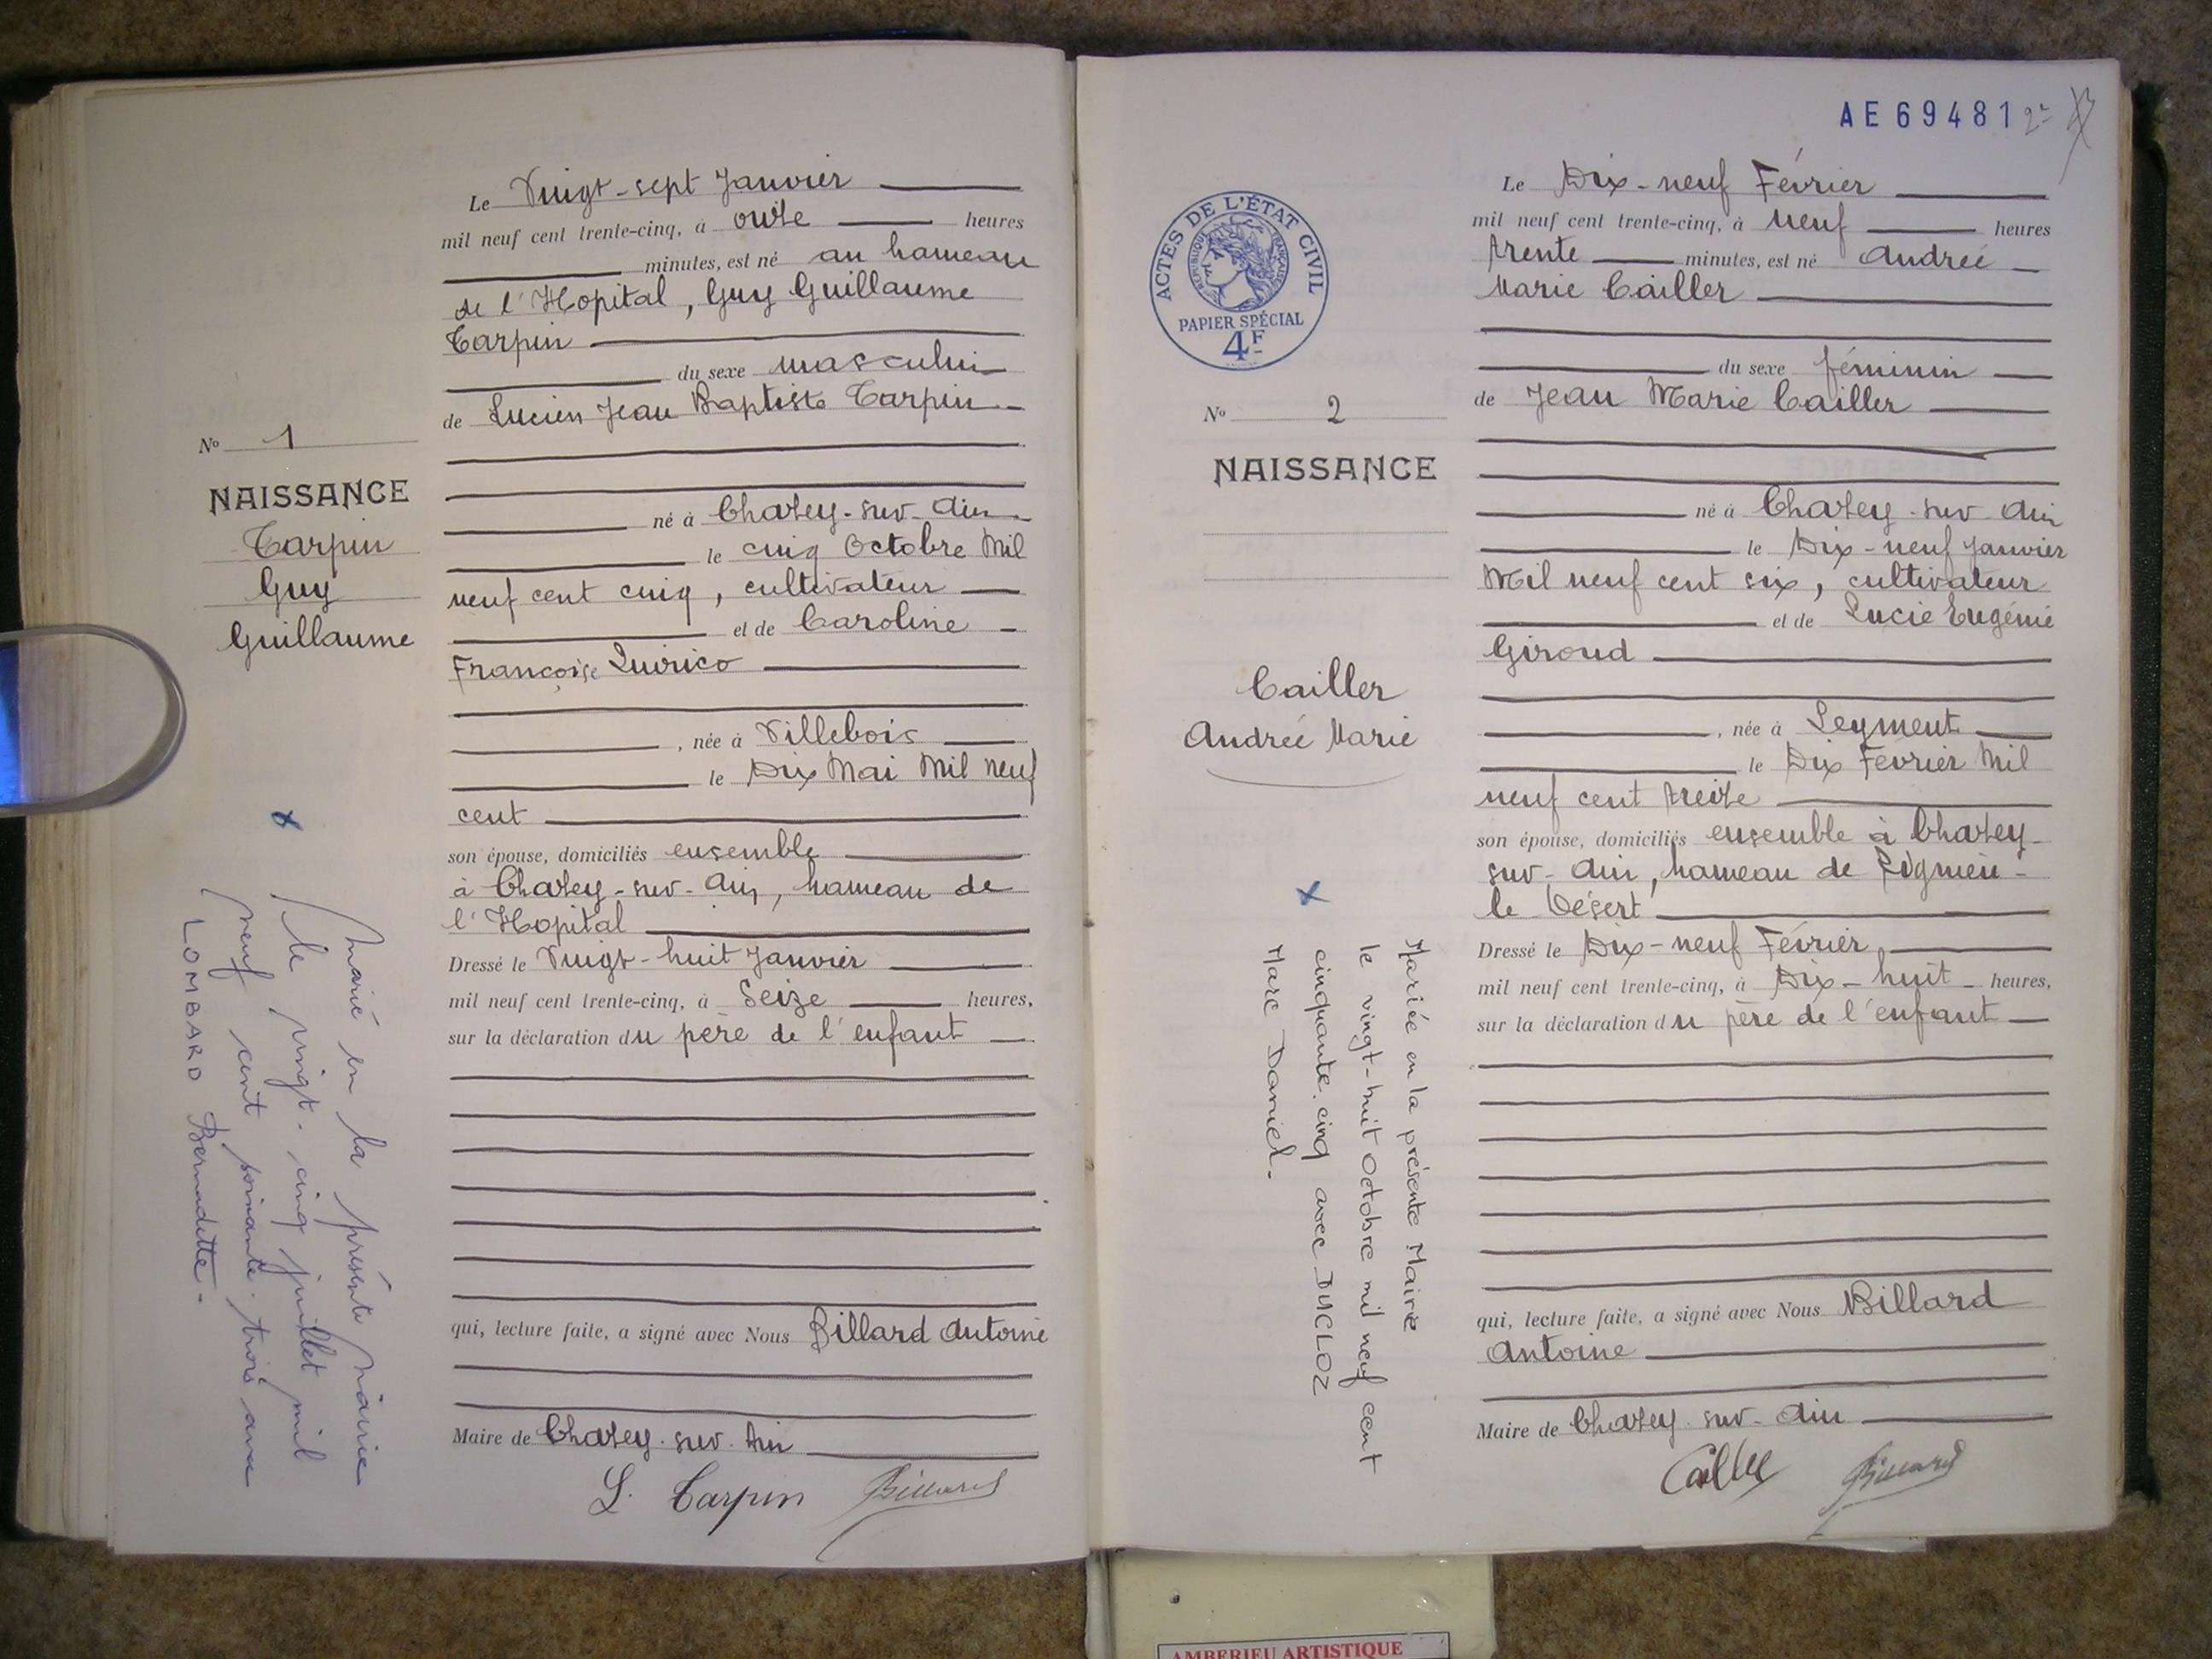 Le Vingt-sept Janvier
mil neuf cent trente-cinq, à onze heures
minutes, est né au hameau
de l'Hopital, Guy Guillaume
Carpin
du sexe masculin
de Lucien Jean Baptiste Carpin
né à Chazey-sur-Ain
le cinq Octobre Mil
neuf cent cinq, cultivateur
et de Caroline
Françoise Quirico
, née à Villebois
le Dix Mai Mil neuf
cent
son épouse, domiciliés ensemble
à Chazey-sur-Ain, hameau de
l'Hopital
Dressé le Vingt-huit Janvier
mil neuf cent trente-cinq, à Seize heures,
sur la déclaration du père de l'enfant
qui, lecture faite, a signé avec Nous Billard Antoine
Maire de Chazey-sur-Ain
L. Carpin Billard
No 1
NAISSANCE
Carpin
Guy
Guillaume
x
marié en la présente mairie
le vingt-cinq juillet mil
neuf cent soixante-trois avec
LOMBARD Bernadette.
AE69481
ACTES DE L'ÉTAT CIVIL
RÉPUBLIQUE FRANÇAISE
PAPIER SPÉCIAL
4F
No 2
NAISSANCE
Cailler
Andrée Marie
x
Mariée en la présente Mairie
le vingt-huit Octobre mil neuf cent
cinquante-cinq avec DUCLOZ
Marc Daniel.
Le Dix-neuf Février
mil neuf cent trente-cinq, à neuf heures
trente minutes, est né Andrée
Marie Cailler
du sexe féminin
de Jean Marie Cailler
né à Chazey-sur-Ain
le Dix-neuf Janvier
Mil neuf cent six, cultivateur
et de Lucie Eugénie
Giroud
, née à Leyment
le Dix Février Mil
neuf cent treize
son épouse, domiciliés ensemble à Chazey-
sur-Ain, hameau de Rignieu-
le Désert
Dressé le Dix-neuf Février
mil neuf cent trente-cinq, à Dix-huit heures,
sur la déclaration du père de l'enfant
qui, lecture faite, a signé avec Nous Billard
Antoine
Maire de Chazey-sur-Ain
Cailler Billard
AMBERIEU ARTISTIQUE